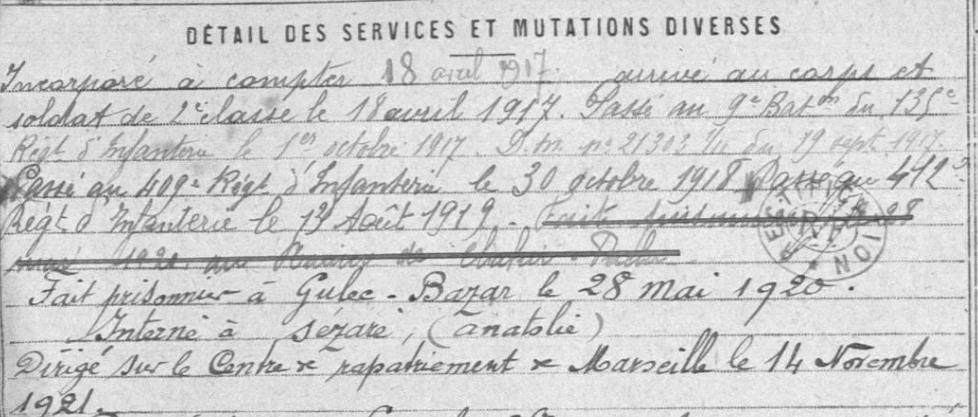 DÉTAIL DES SERVICES ET MUTATIONS DIVERSES
Incorporé à compter 18 avril 1917. arrivé au corps et
soldat de 2e classe le 18 avril 1917. Passé au 9e Baton du 135e
Régt d'Infanterie le 1er octobre 1917. D.M. no 21303 du 19 sept 1917.
Passé au 409e Régt d'Infanterie le 30 octobre 1918 Passé au 412e
Régt d'Infanterie le 13 Août 1919. Fait 28
1920 aux de
Fait prisonnier à Gulec-Bazar le 28 mai 1920.
Interné à Sézaré, (anatolie)
Dirigé sur le Centre de rapatriement de Marseille le 14 Novembre
1921.